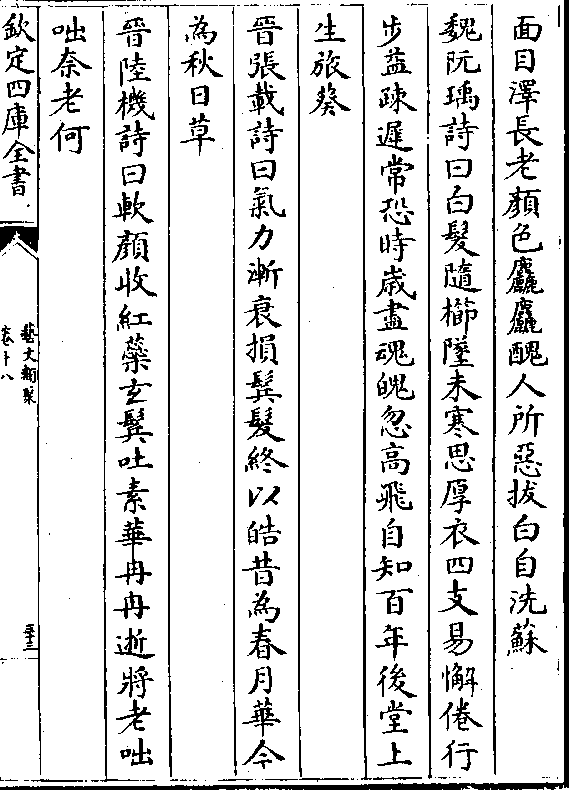 面目澤長老顔色麤麤醜人所惡拔白自洗蘇
魏阮瑀詩曰白髮隨櫛墜未寒思厚衣四支易懈倦行
步益疎遲常恐時歳盡魂魄忽高飛自知百年後堂上
生旅葵
晉張載詩曰氣力漸衰損鬢髮終以皓昔為春月華今
為秋日草
晉陸機詩曰軟顔收紅蘂玄鬢吐素華冉冉逝將老咄
咄奈老何
欽定四庫全書
藝文類聚
卷十八
三十三